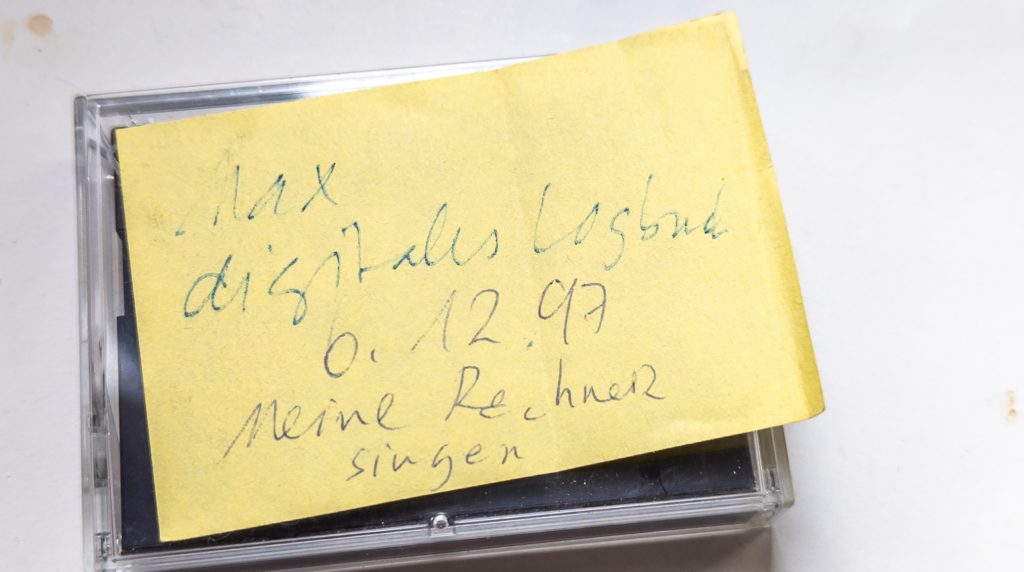 Max
digitales Logbuch
6.12.97
Meine Rechner
singen